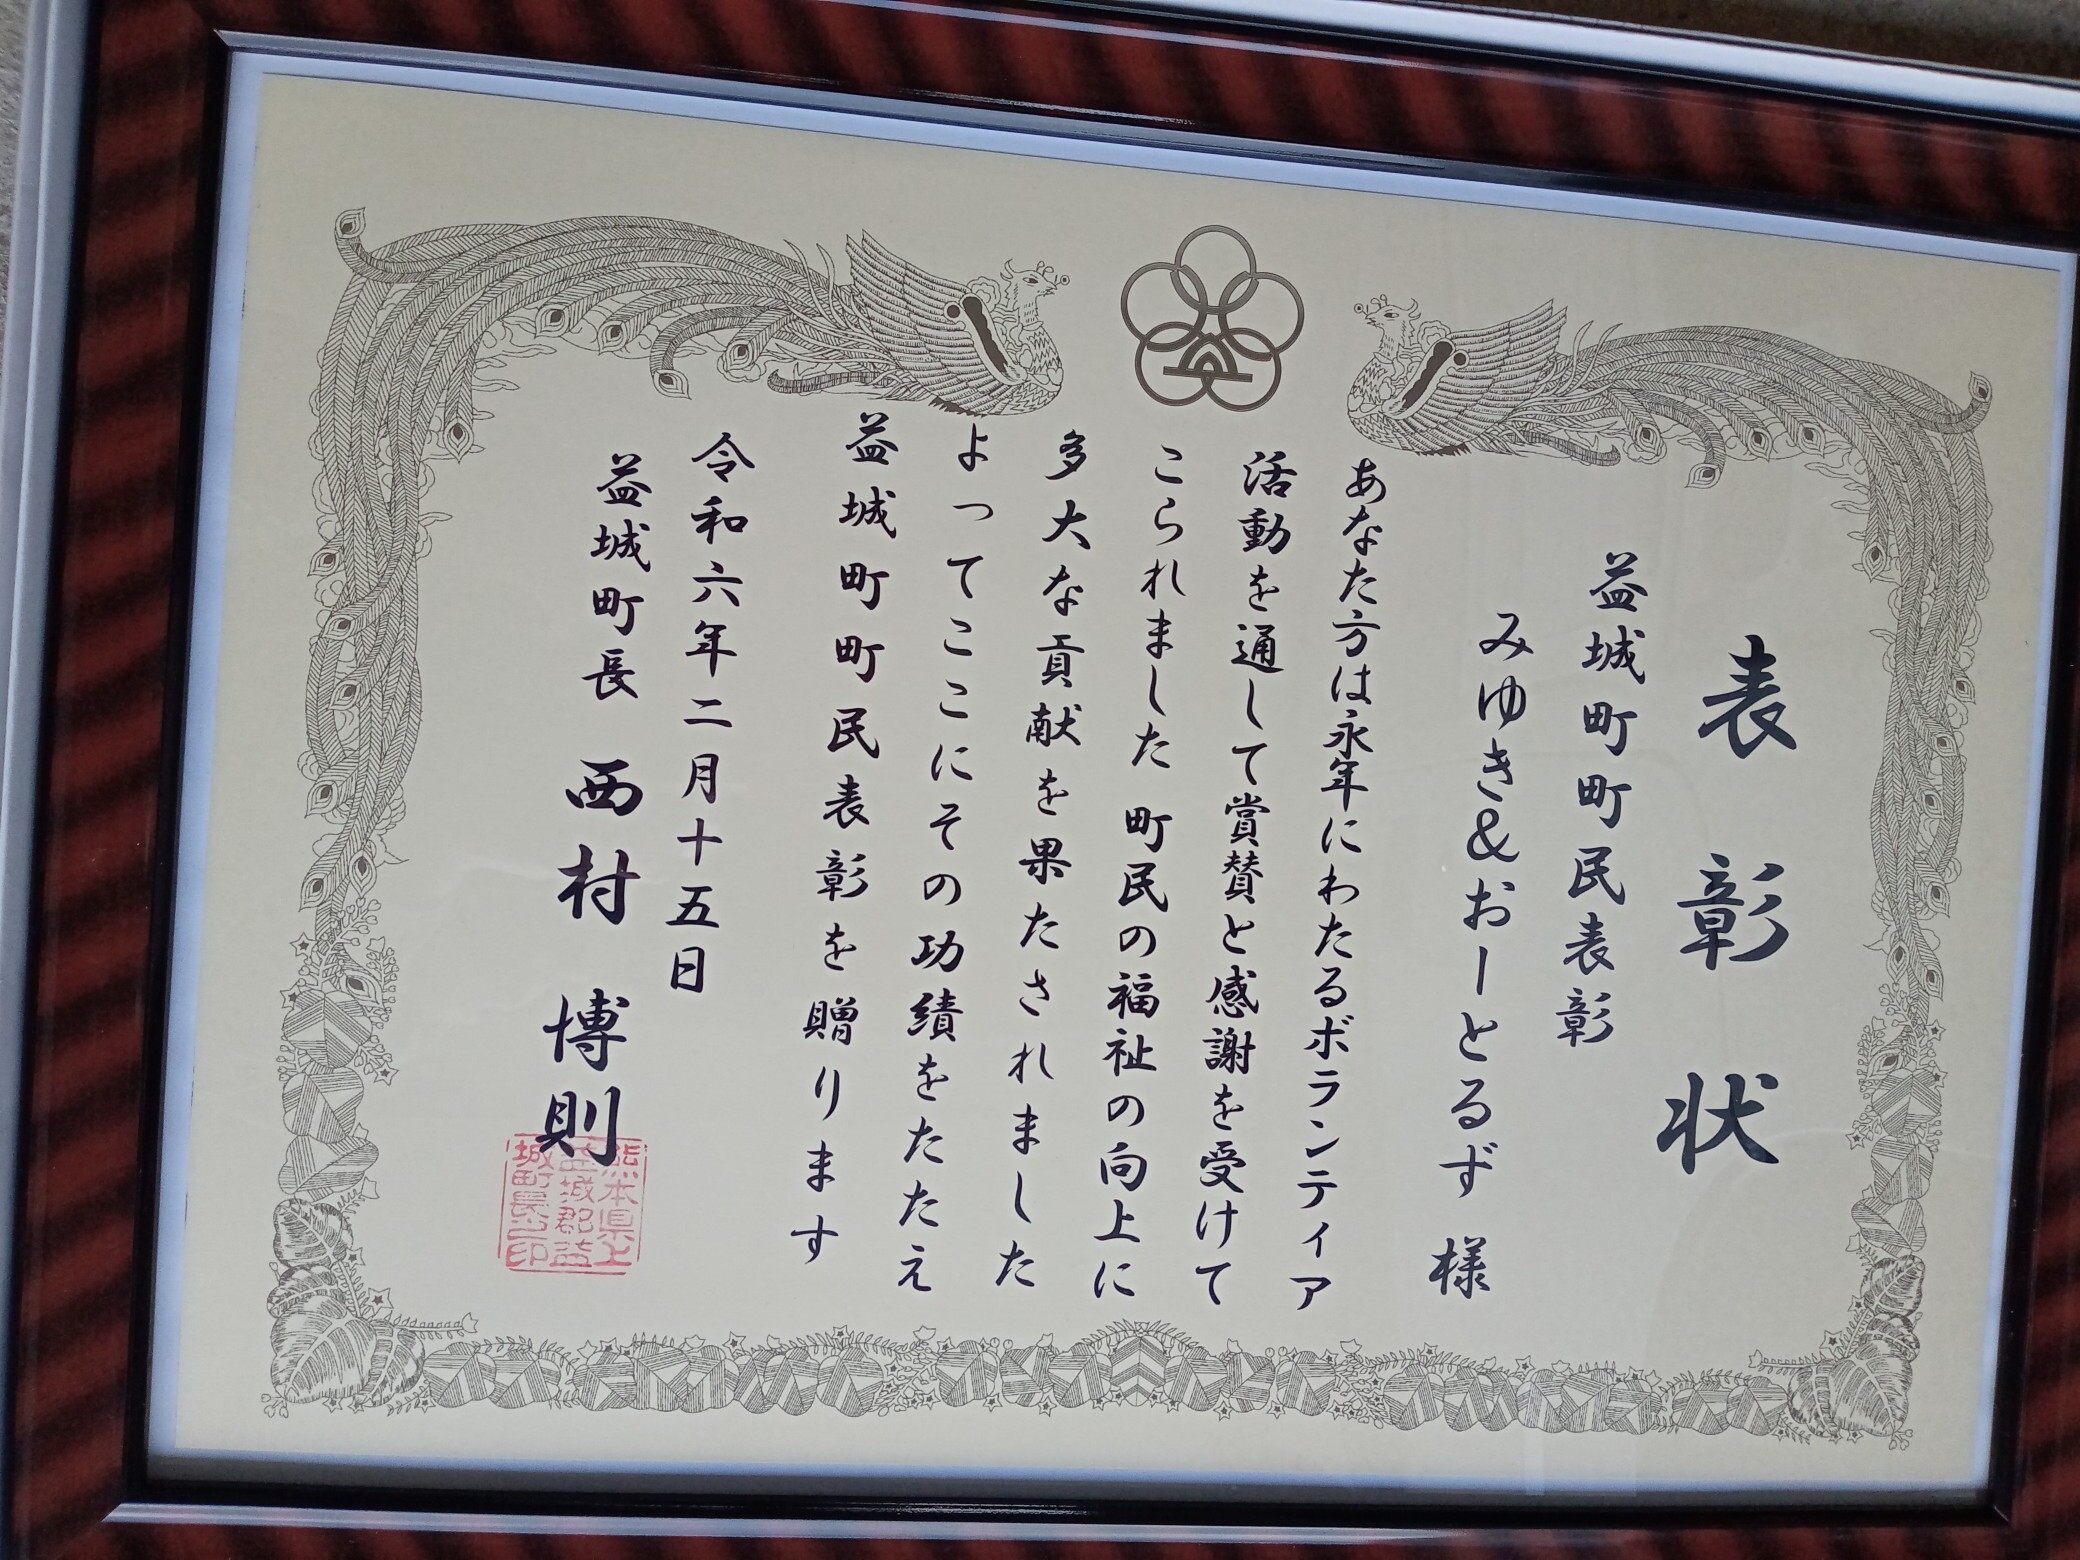 表彰状
益城町町民表彰
みゆき&おーとるず 様
あなた方は永年にわたるボランティア
活動を通して賞賛と感謝を受けて
こられました 町民の福祉の向上に
多大な貢献を果たされました
よってここにその功績をたたえ
益城町町民表彰を贈ります
令和六年二月十五日
益城町長 西村 博則
熊本県上
益城郡益
城町長之印